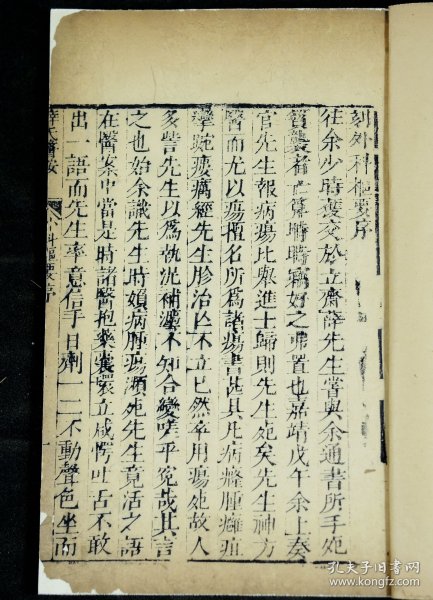 刻外科樞要序
往余少時獲交於立齋薛先生嘗與余通書所手宛
醫者亡算時時竊好之弗置也嘉靖戊午余上奏
官先生報病瘍比舉進士歸則先生宛矣先生神方
醫而尤以瘍擅名所為諸瘍書甚具凡病癃腫癰疽
攣踠瘻癘經先生胗治亡不立已然卒用瘍宛故人
多訾先生以為執泥補瀉不知合變嗟乎冤哉其言
之也始余識先生時頗病腫瘍瀕宛先生竟活之語
在醫案中當是時諸醫抱藥囊環立咸愕吐舌不敢
出一語而先生率意信手日劑一二不動聲色坐而
薛氏醫按
外科樞要序
孔夫子旧书网
www.kongfz.com